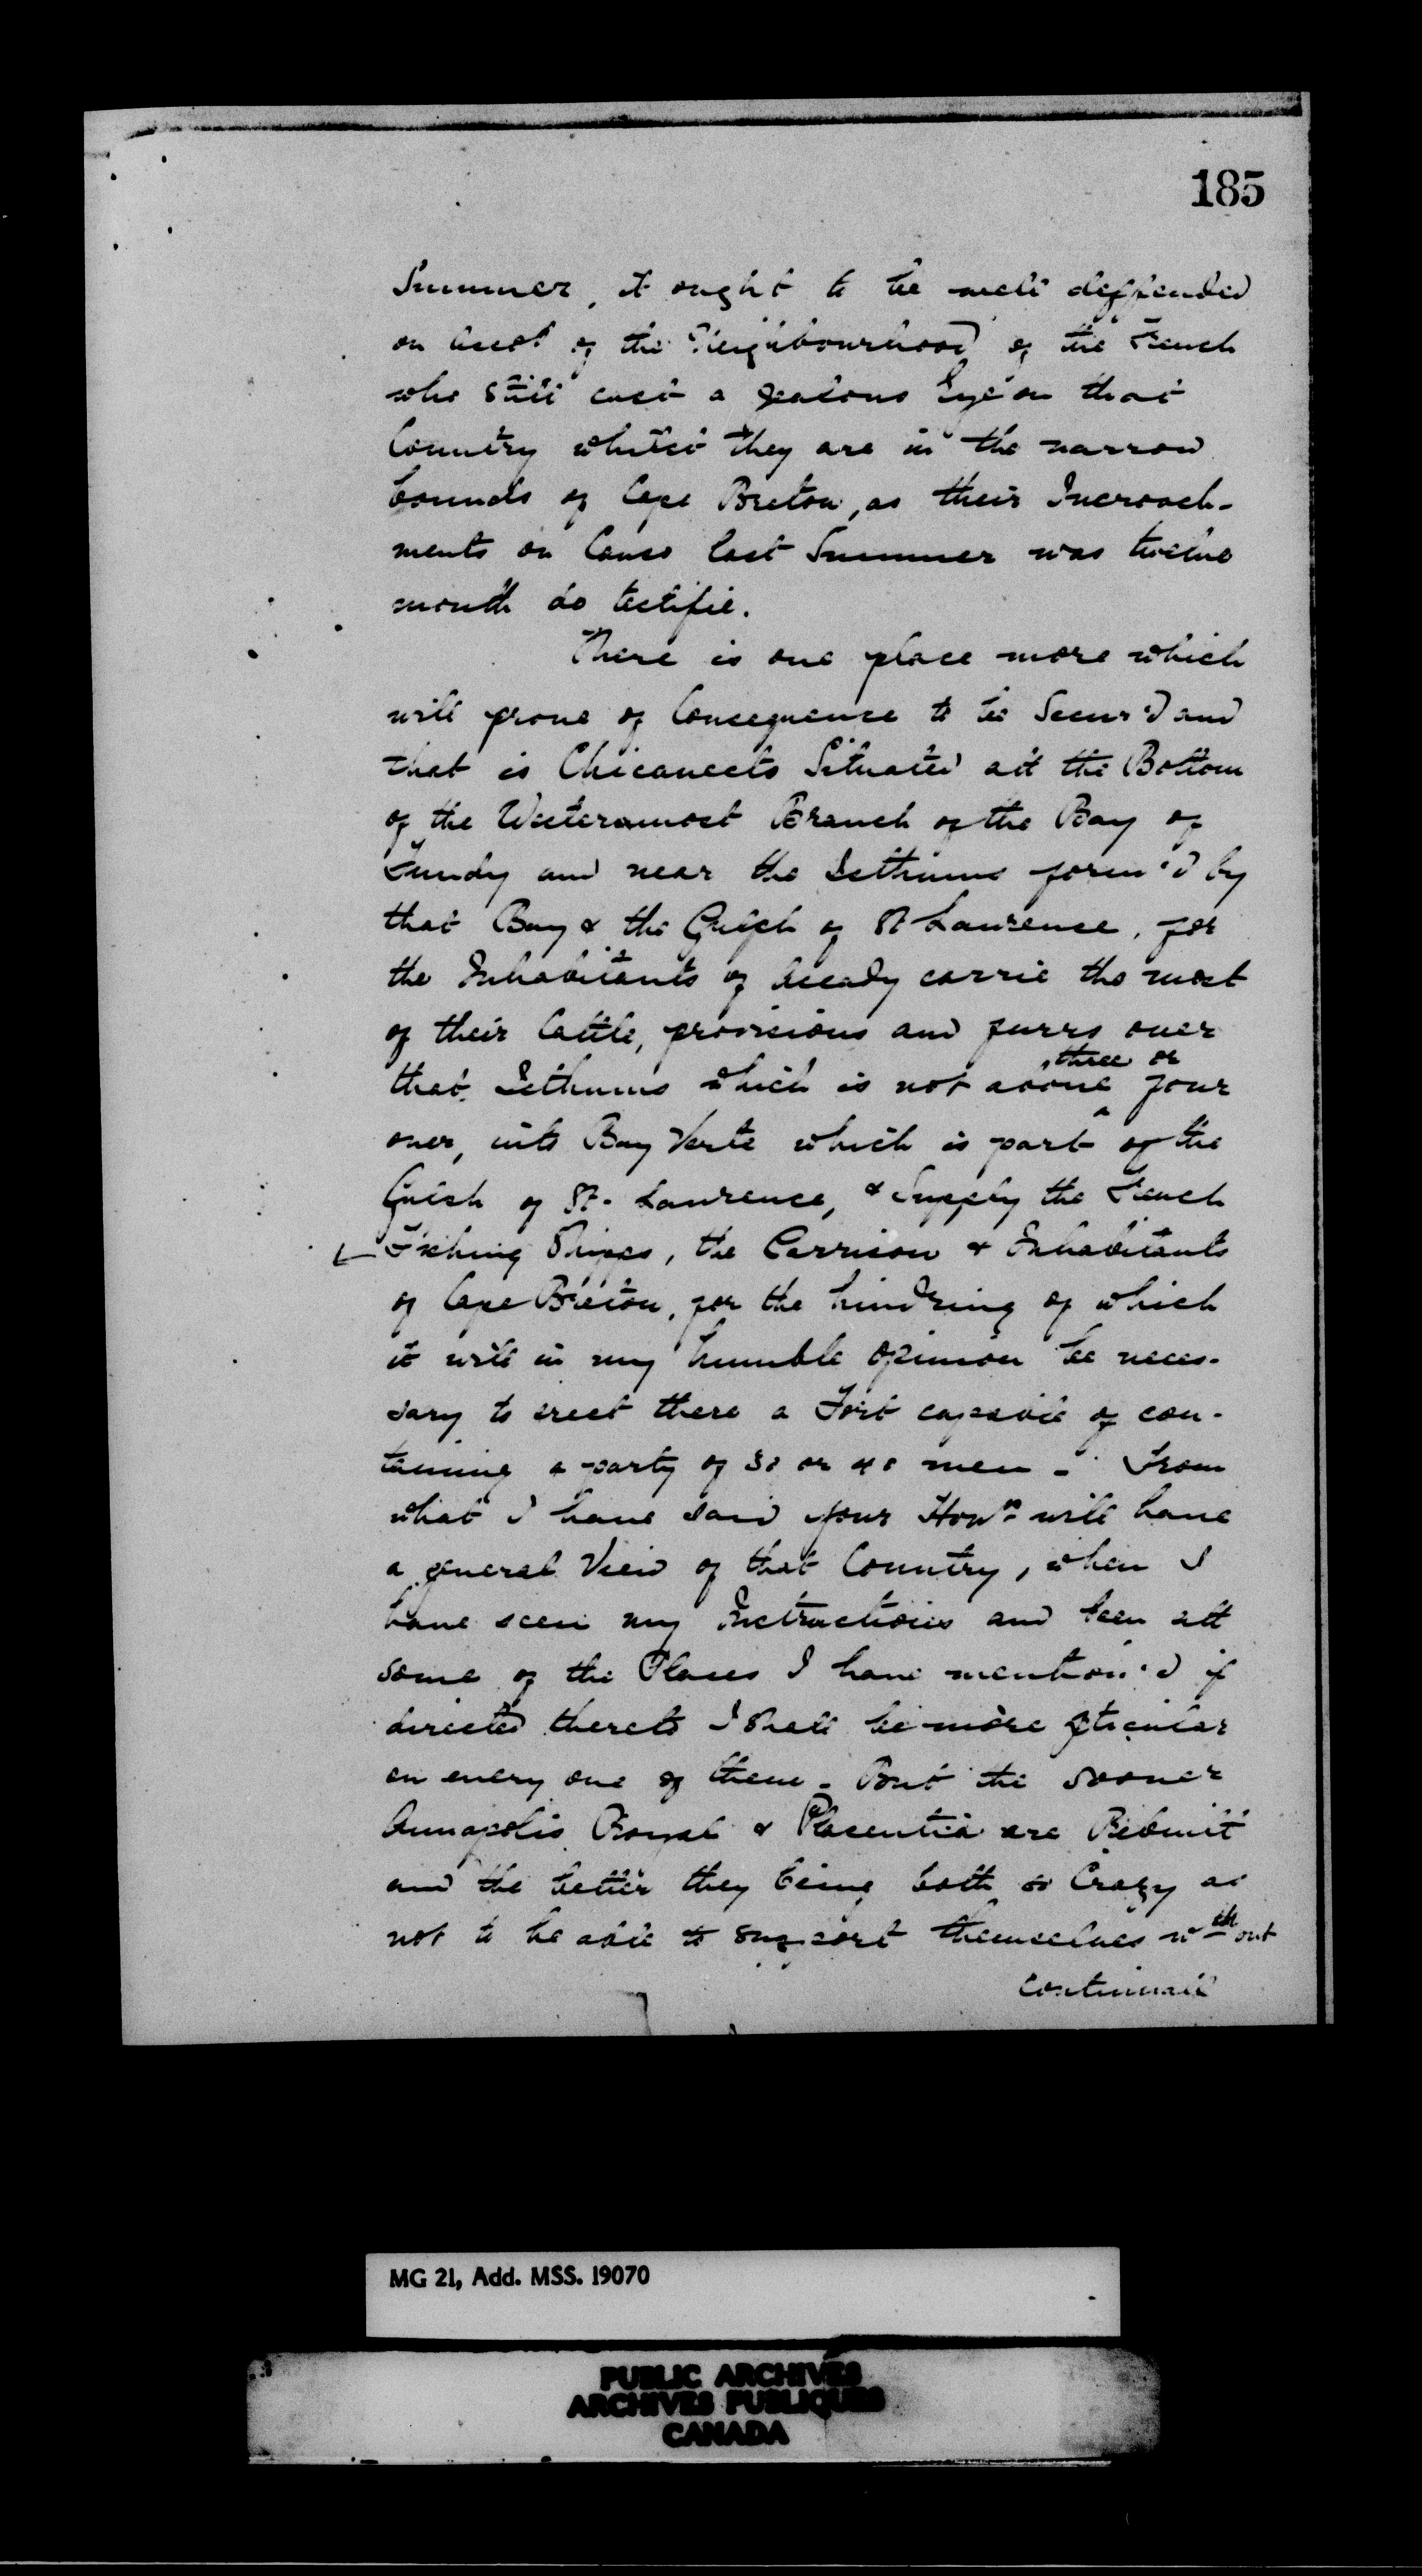 185
Summer, it ought to be well deffended
on Accot of the Neighbourhood of the French
who still cast a jealous Eye on that
Country whilst they are in the narrow
bounds of Cape Breton, as their Incroach-
ments on Canso last Summer was twelve
month do testifie.
There is one place more which
will prove of Consequence to be Secur'd and
that is Chicanecto Situated att the Bottom
of the Westernmost Branch of the Bay of
Fundy and near the Isthmus form'd by
that Bay & the Gulph of St Laurence, for
the Inhabitants of Accady carrie the most
of their Cattle, provisions and furrs over
three or
that Isthmus which is not above four
over, into Bay Verte which is part of the
Gulph of St. Laurence, & Supply the French
Fishing Shipps, the Garrison & Inhabitants
of Cape Breton, for the hindring of which
it will in my humble opinion be neces-
sary to erect there a Fort capable of con-
taining a party of 30 or 40 men - From
what I have said your Honrs will have
a general View of that Country, when I
have seen my Instructions and been att
some of the Places I have mention'd if
directed thereto I shall be more pticular
on every one of them - But the sooner
Annapolis Royal & Placentia are Rebuilt
and the better they being both so Crazy as
not to be able to support themselves wth out
continuall
MG 21, Add. MSS. 19070
PUBLIC ARCHIVES
ARCHIVES PUBLIQUES
CANADA